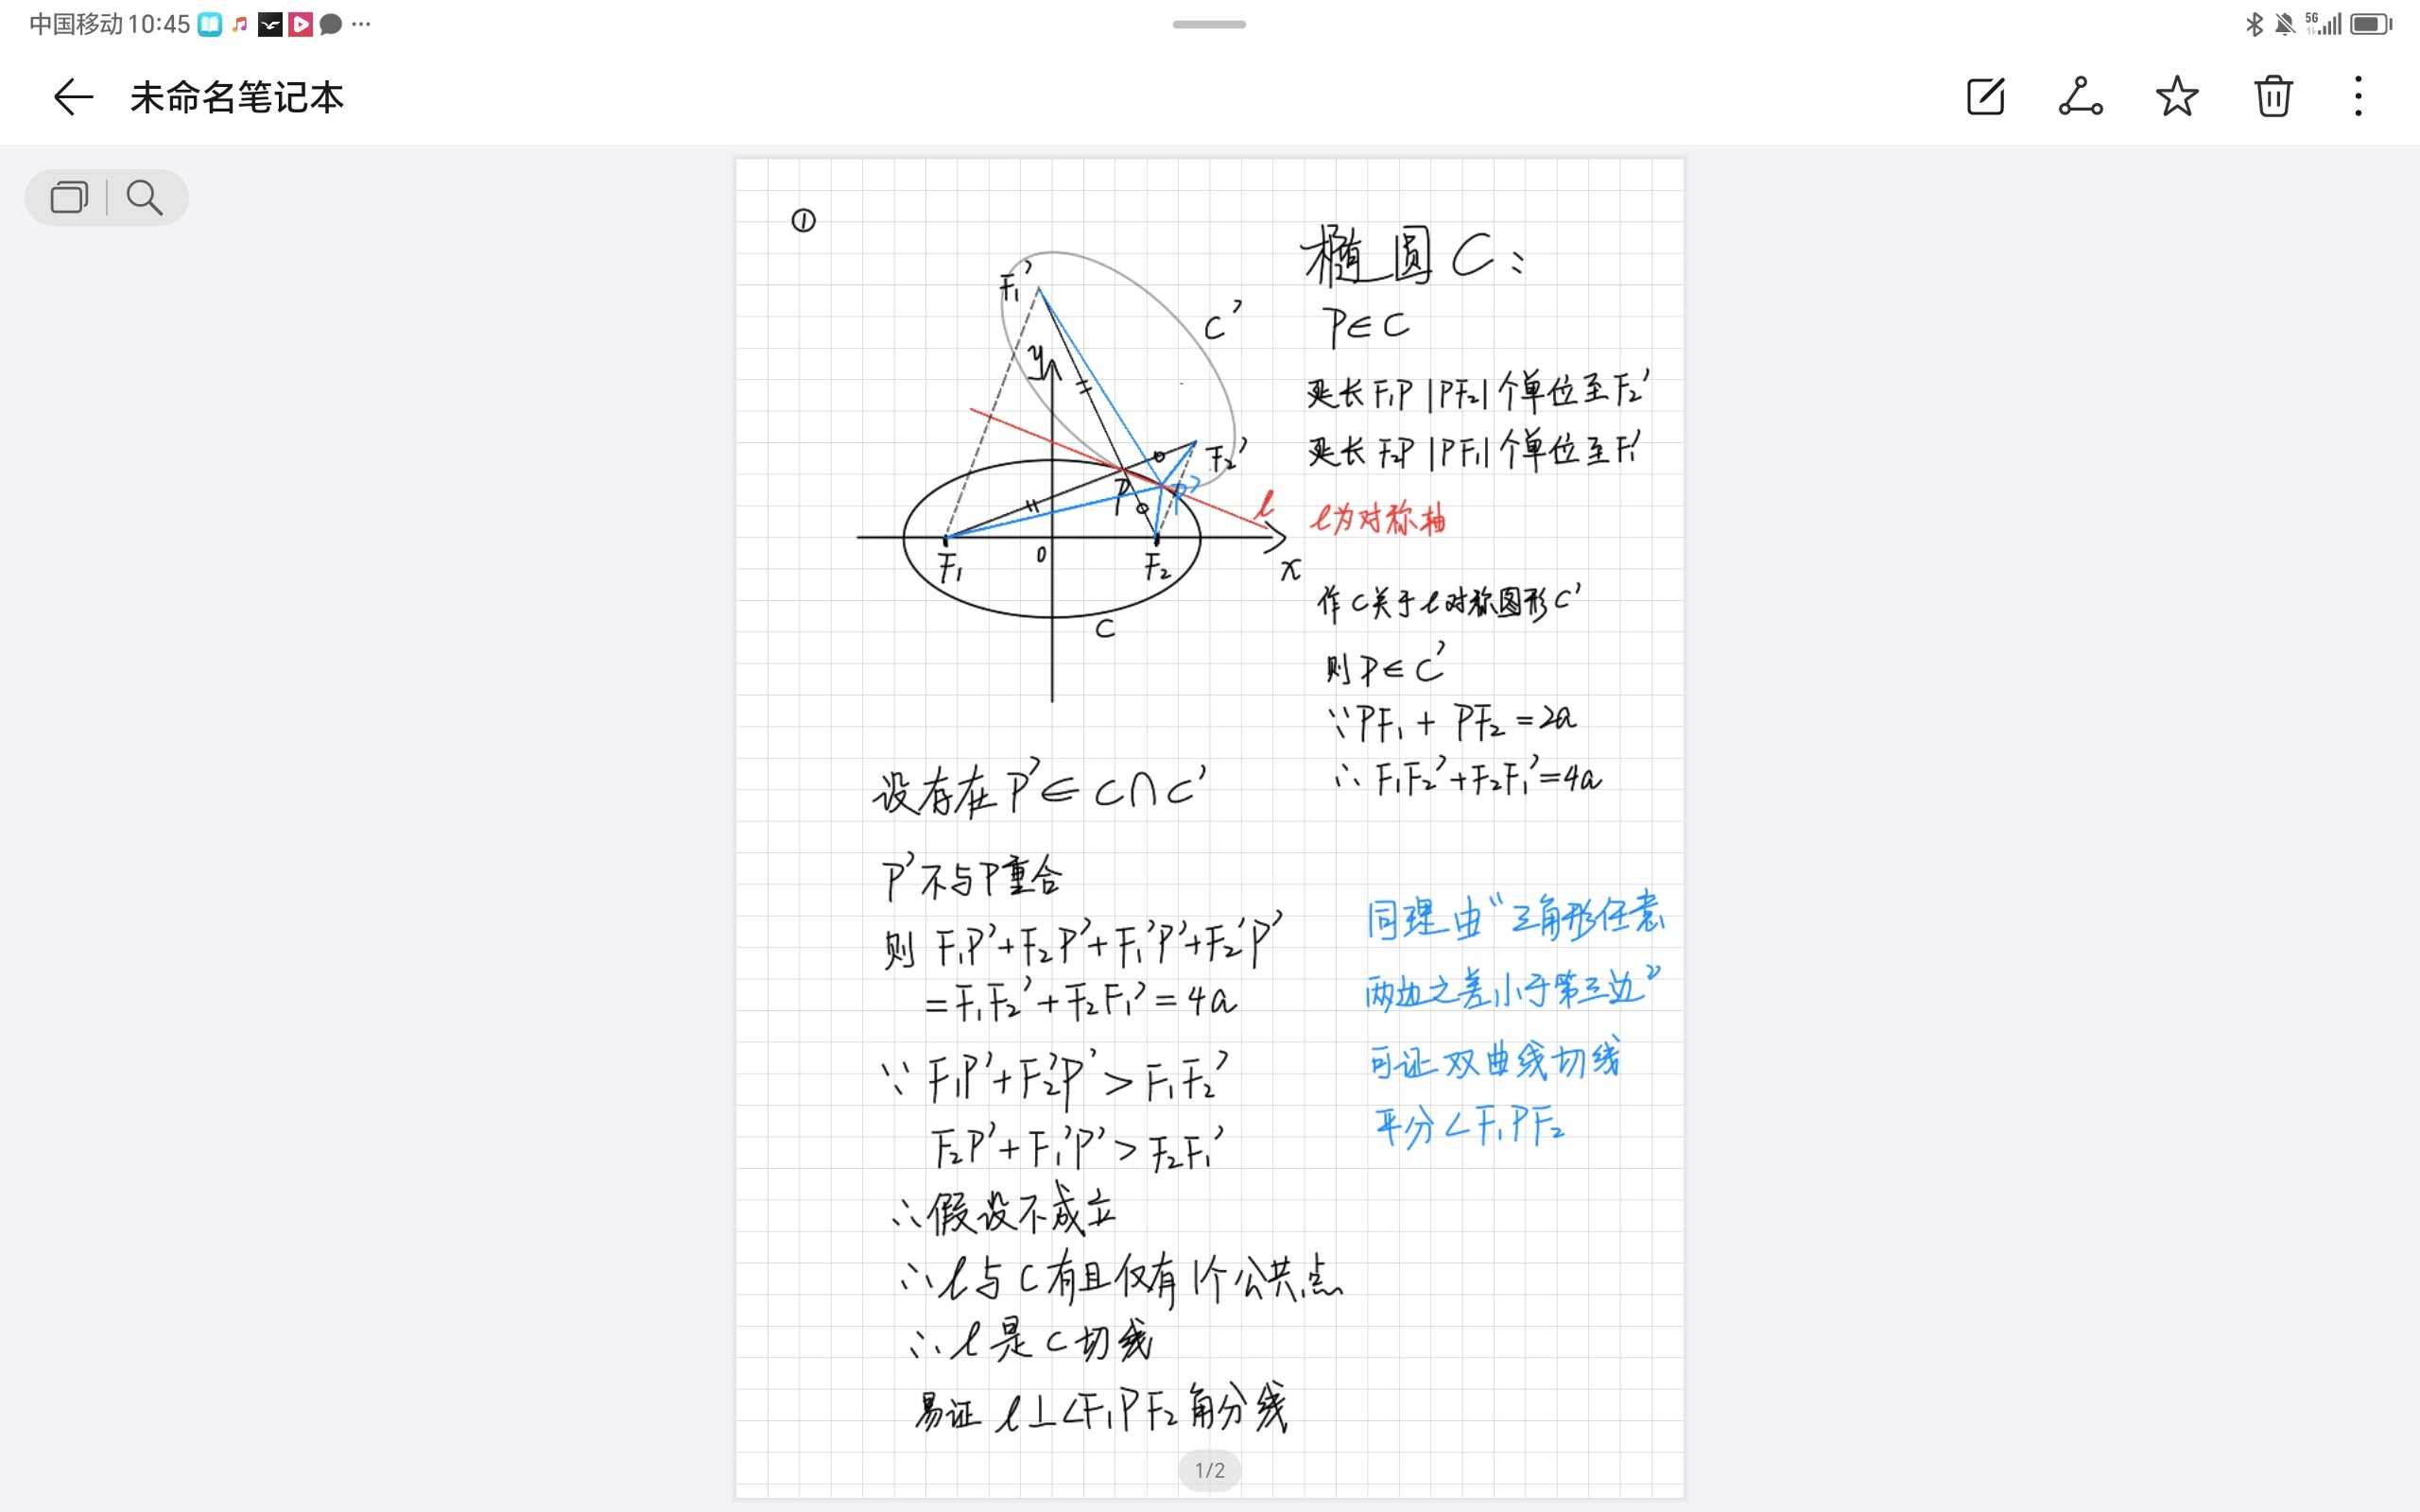 中国移动 10:45
5G
未命名笔记本
①
椭圆 C：
P∈C
延长 F₁P |PF₂| 个单位至F₂'
延长 F₂P |PF₁| 个单位至F₁'
l为对称轴
作C关于l对称图形C'
则 P∈C'
∵PF₁ + PF₂ = 2a
∴ F₁F₂'+F₂F₁'=4a
F₁'
C'
y
F₂'
P
P'
l
F₁
O
F₂
x
C
设存在 P'∈ C∩C'
P'不与P重合
则 F₁P'+F₂P'+F₁'P'+F₂'P'
=F₁F₂'+F₂F₁'=4a
∵ F₁P'+F₂'P' > F₁F₂'
F₂P'+F₁'P' > F₂F₁'
∴假设不成立
∴l与C有且仅有1个公共点
∴l是C切线
易证 l⊥∠F₁PF₂角分线
同理由“三角形任意
两边之差小于第三边”
可证双曲线切线
平分∠F₁PF₂
1/2